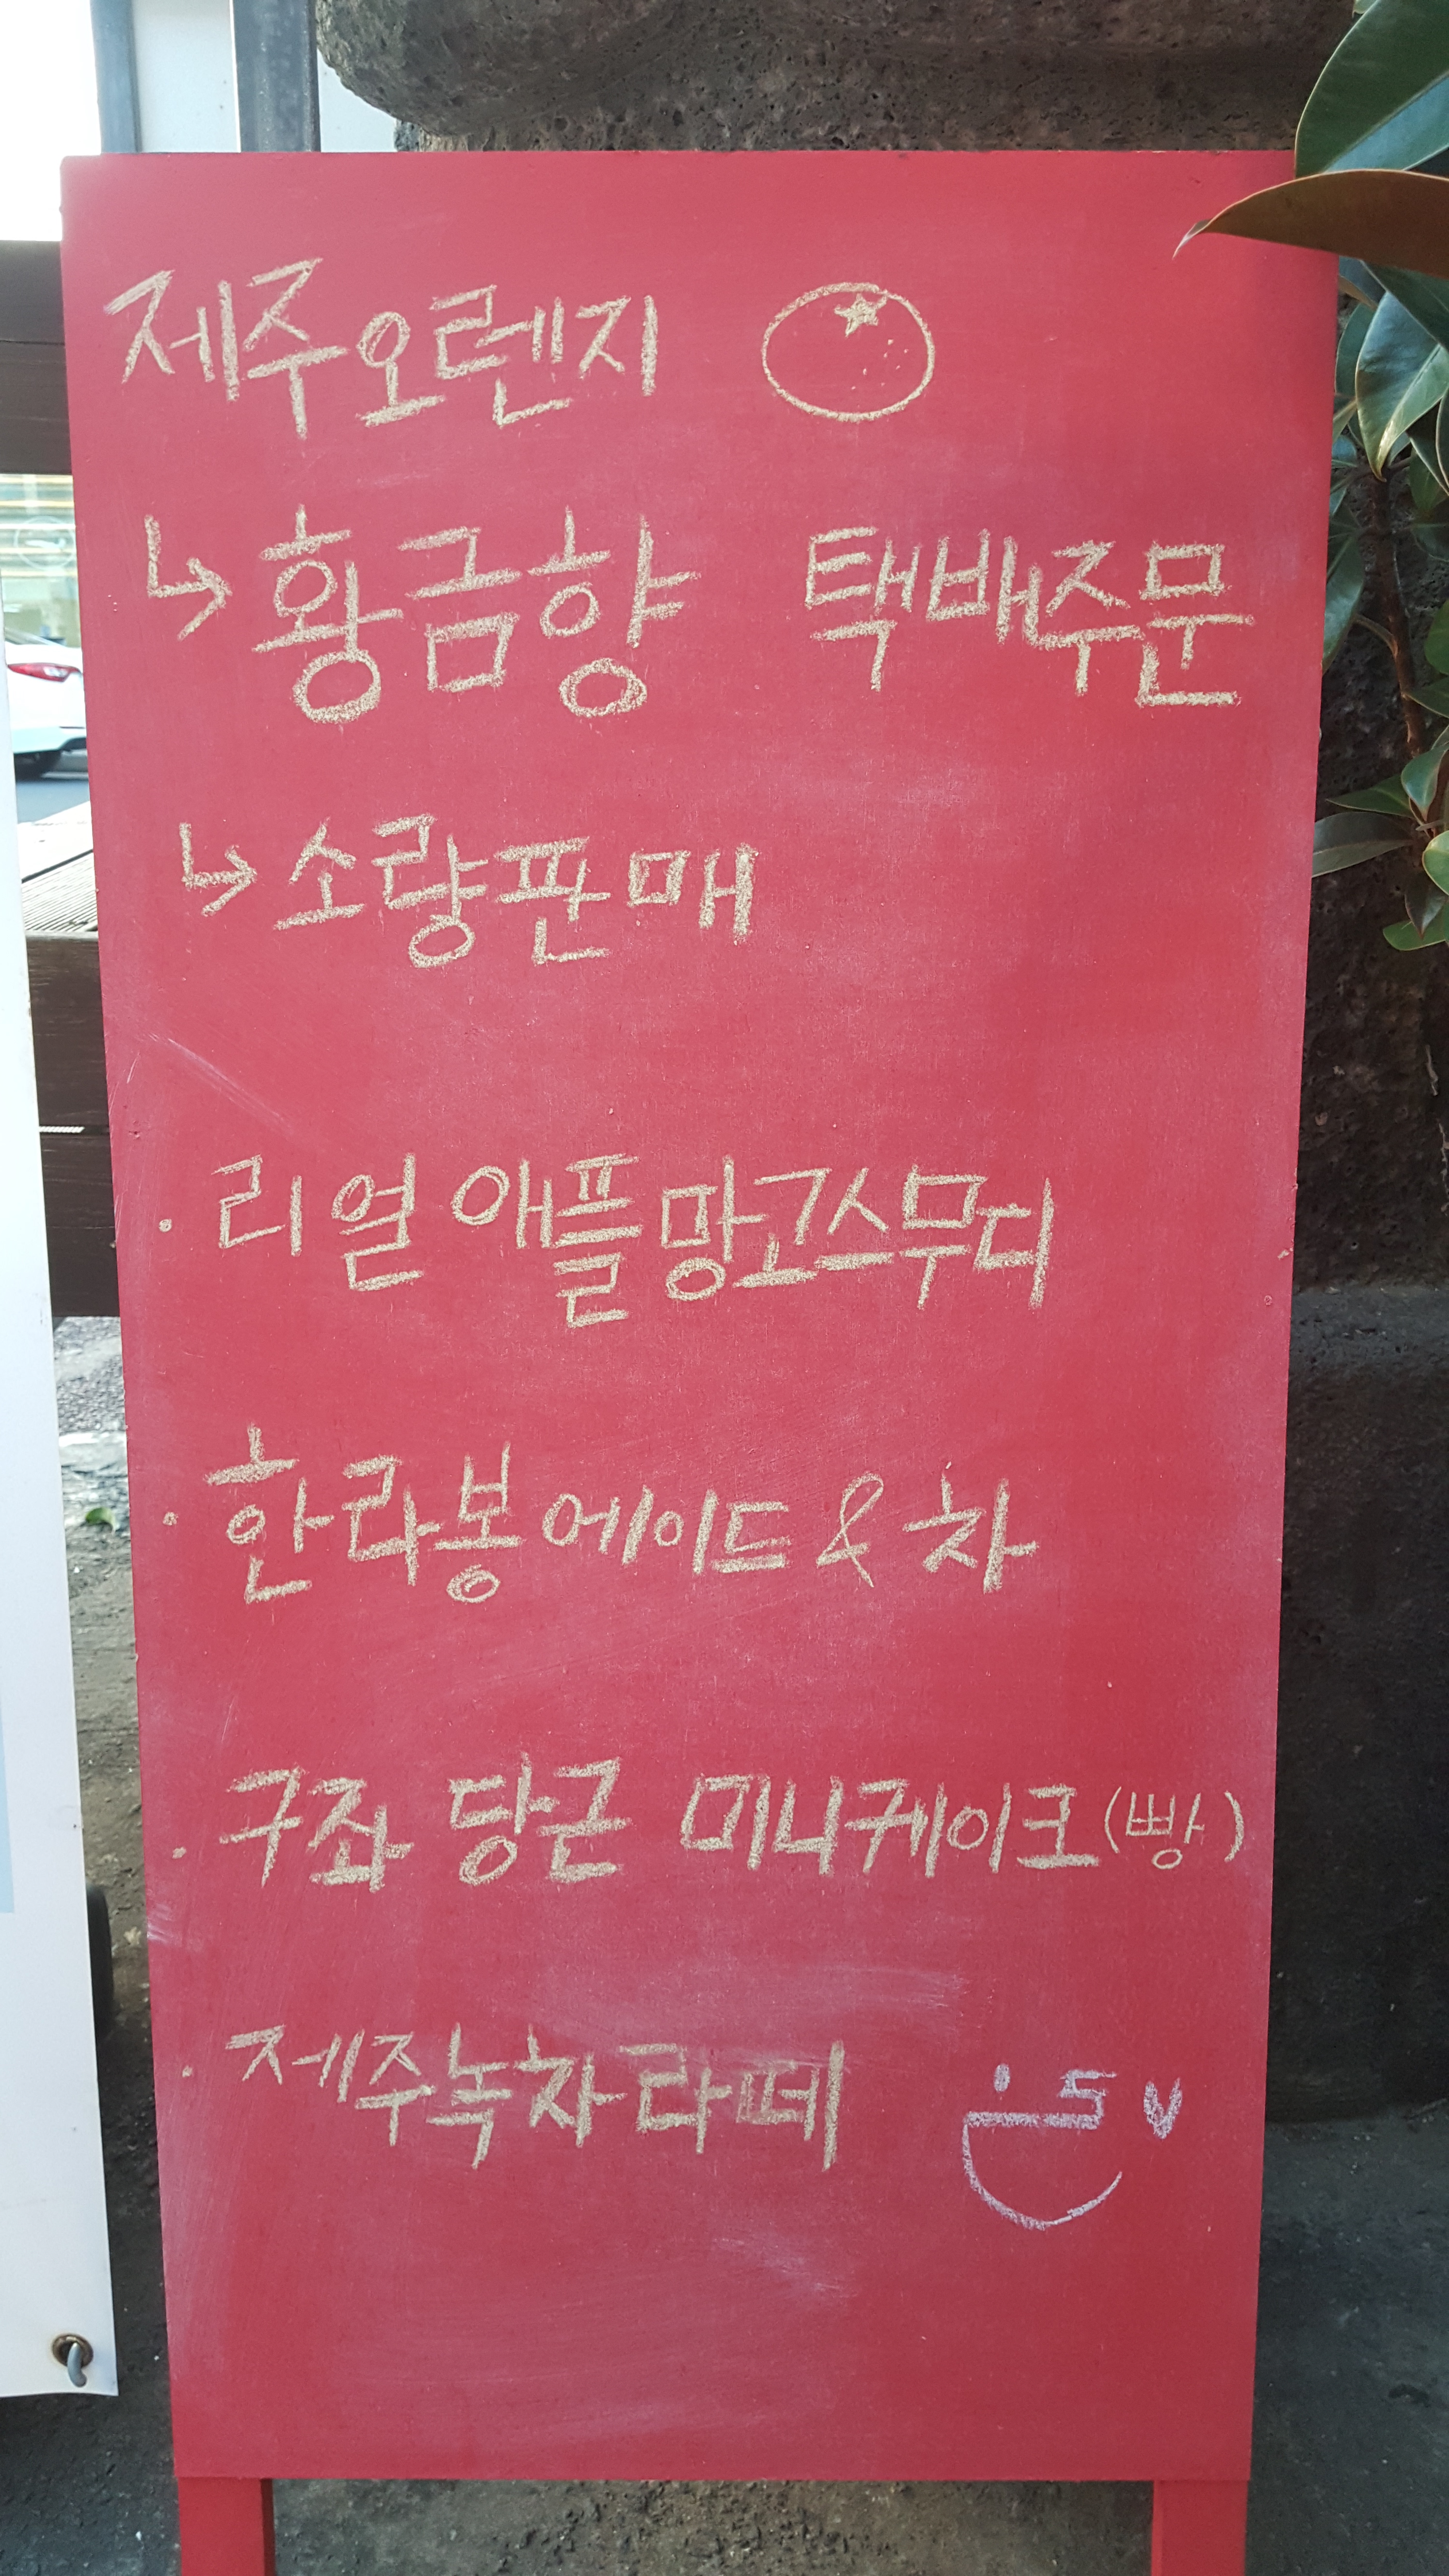 제주오렌지
↳ 황금향 택배주문
↳ 소량판매
· 리얼 애플망고스무디
· 한라봉에이드 & 차
· 구좌 당근 미니케이크(빵)
· 제주녹차라떼